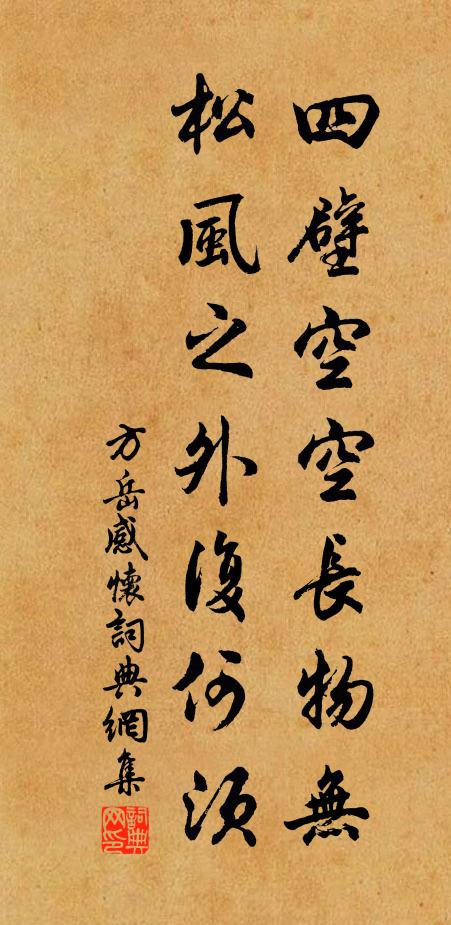 四壁空空長物無
松風之外復何須
方岳感懷詞典網集
詞典網印